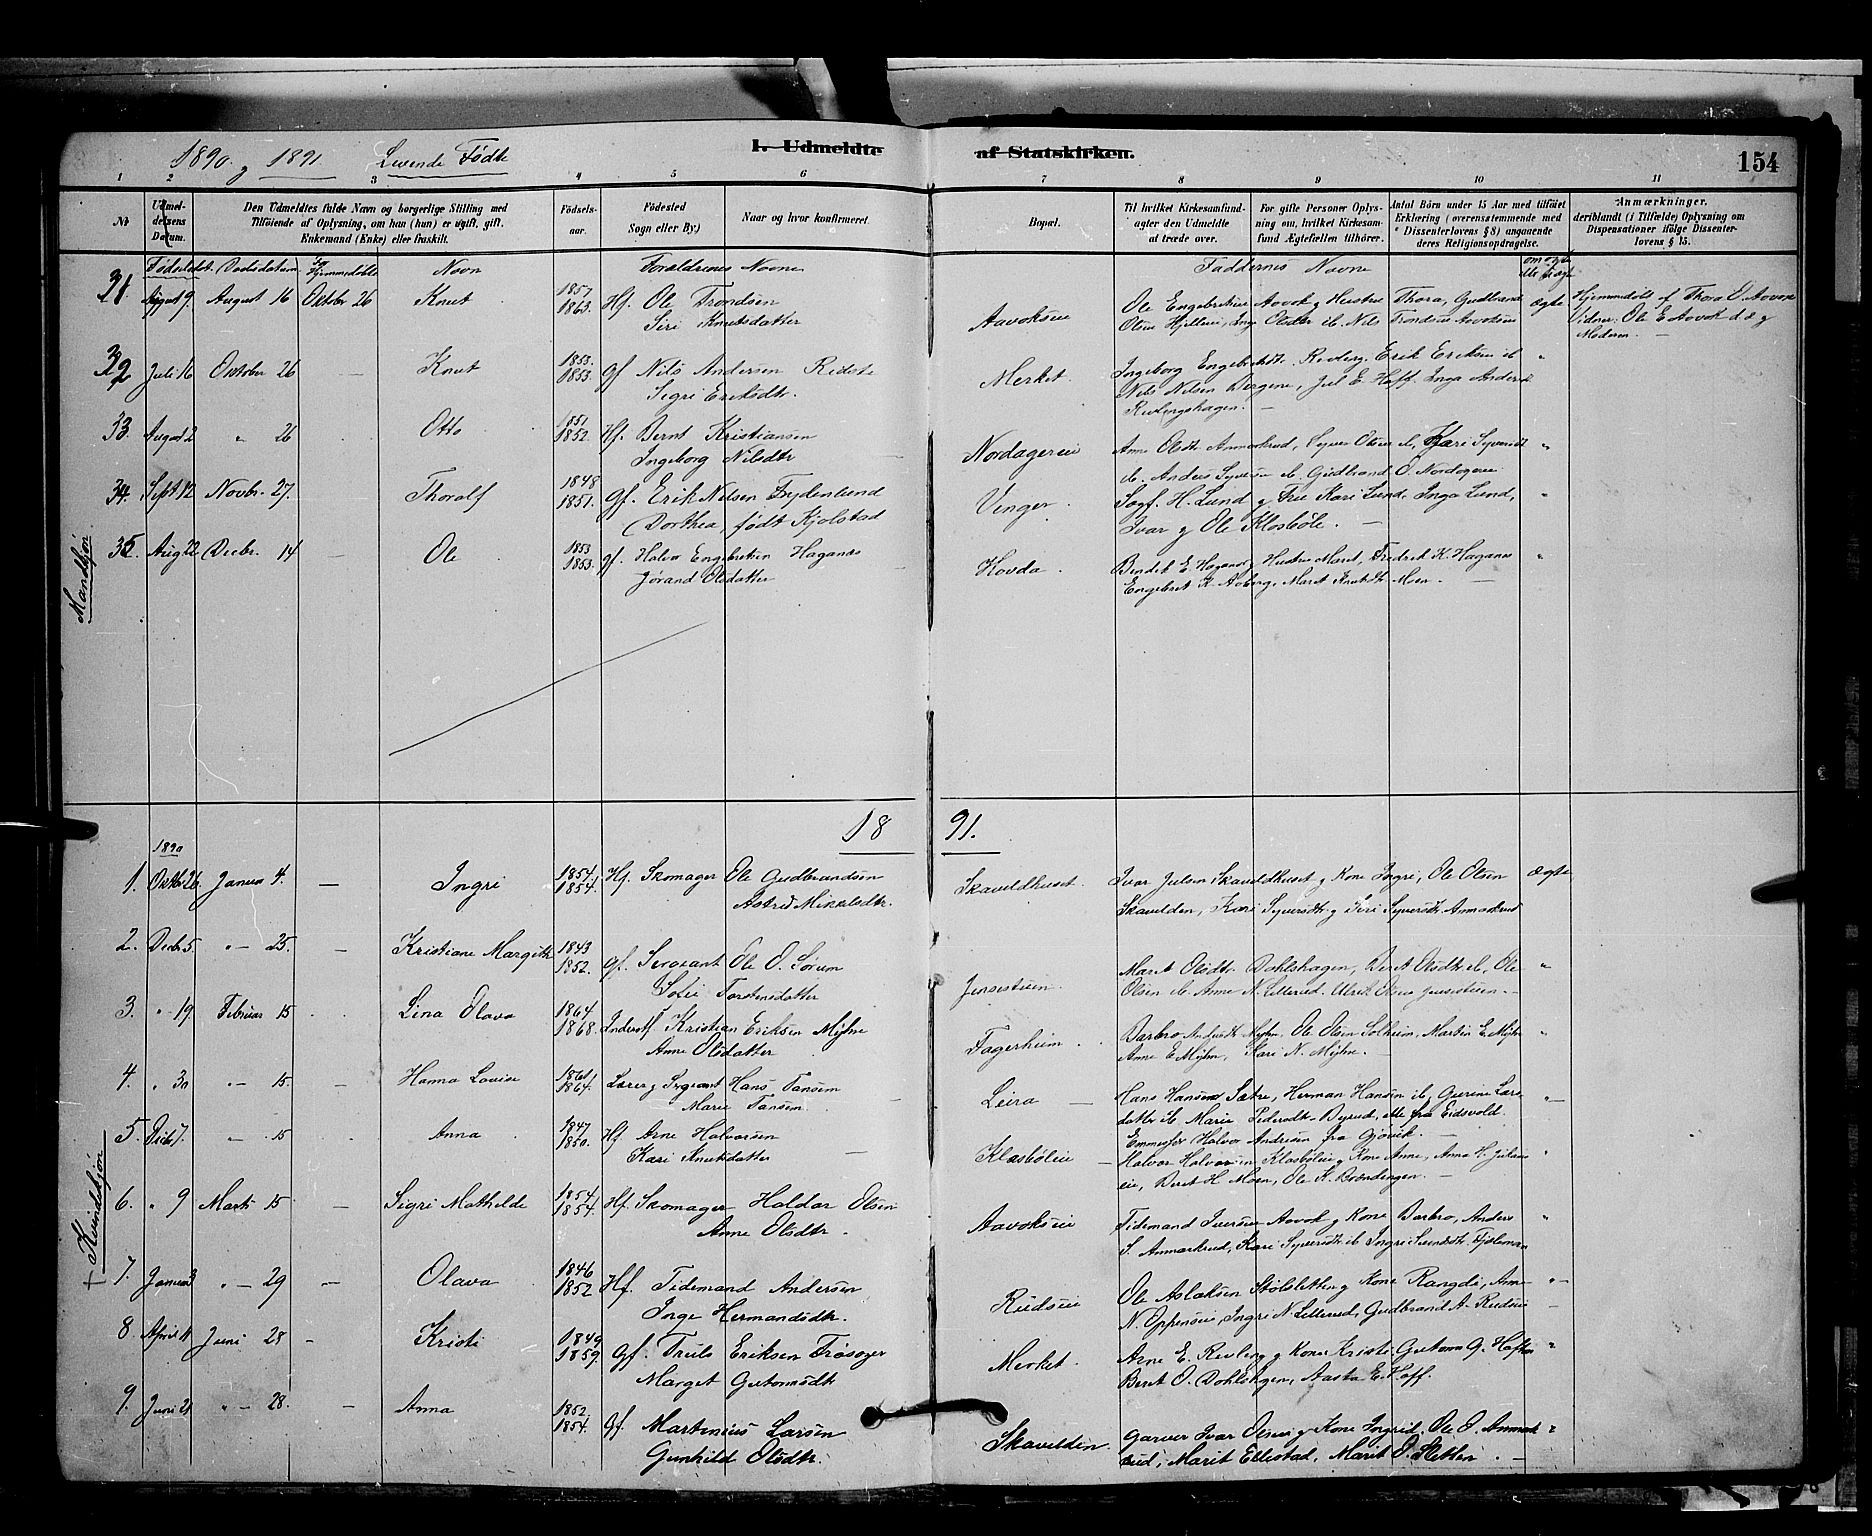 1890 g 1891 Levende Fødte
1. Udmeldte af Statskirken. 154
1 2 3 4 5 6 7 8 9 10 11
Nr.
Udmeldelsens Datum.
Den Udmeldtes fulde Navn og borgerlige Stilling med
Tilføiende af Oplysning, om han (hun) er ugift, gift,
Enkemand (Enke) eller fraskilt.
Fødselsaar.
Fødested
Sogn eller By)
Naar og hvor konfirmeret
Bopæl.
Til hvilket Kirkesamfund
agter den Udmeldte
at træde over.
For gifte Personer Oplysning
om, hvilket Kirkesamfund
Ægtefællen tilhører.
Antal Börn under 15 Aar med tilføiet
Erklæring (overensstemmende med
Dissenterlovens § 8) angaaende
deres Religionsopdragelse.
Anmærkninger,
deriblandt (i Tilfælde) Oplysning om
Dispensationer ifölge Dissenterlovens § 15.
Fødseldt. Daabsdatum Hjemmedøbte Navn Forældrenes Navne Faddernes Navne om ægte
Mandkjøn
31 August 9. August 16 Oktbr 26 Knut 1857 1863. Hf. Ole Trondsen
Siri Knutsdatter
Aavokseie
Ole Engebretsen Aavok g Hustru Thora, Gudbrand
Olsen Hjelleie, Inga Olsdtr ib. Nils Trondsen Aavokseie
ægte
Hjemmedøbt af Thora O. Aavok
Vidner: Ole E Aavok d.æ. g
Moderen. —
32 Juli 16 Oktober 26 — Knut 1853. 1853. gf Nils Andersen Rudste
Sigri Eriksdtr.
Merket.
Ingeborg Engebretsdtr. Revling. Erik Eriksen ib
Nils Nilsen Bergene, Jul E. Hoff, Inga Andersd
Revlingshagen. —
33. August 2 " 26 Otto 1851 1852. Hf. Bernt Kristiansen
Ingeborg Nilsdtr
Nordagereie
Anne Olsdtr Anmarkrud, Syver Olsen ib, Kari Syversdt
ib. Anders Syversen ib. Gudbrand O. Nordagereie
34. Sept 12 Novbr. 27. Thoralf 1848 1851. gf. Erik Nilsen Frydenlund
Dorthea, født Kjølstad
Vinger.
Sogf. H. Lund g Frue Kari Lund, Inga Lund,
Ivar g Ole Klosbøle. —
35. Aug 22 Decbr. 14 — Ole 1853 1853. gf. Halvor Engebretsen Haganes
Jørand Olsdatter
Hovda.
Bendik E Haganes g Hustru Marit, Fredrik K. Haganes
Engebret K. Aaberg, Marit Knutsdtr Moen. —
18 91.
Kvindekjøn
1890
1. Oktbr 26. Januar 4. — Ingri 1854. 1854. Hf. Skomager Ole Gudbrandsen
Astrid Mikkelsdtr.
Skaveldhuset.
Ivar Julsen Skaveldhuset g Kone Ingri, Ole Olsen
Skavelden, Kari Syversdtr. g Siri Syversdtr. Anmarkrud
ægte
2. Decbr 5. " — 25. — Kristiane Margith 1843 1852. gf. Sergeant Ole O. Sørum
Sofie Torstensdatter
Jensestuen.
Marit Olsdtr. Dahlshagen, Berit Olsdtr ib, Ole
Olsen ib. Anne N. Lillerud. Ulrik Olsen Jensestuen. —
3. " 19 Februar 15 Lina Olava 1864 1868. Inderst Kristian Eriksen Myhre
Anne Olsdatter
Fagerheim.
Barbro Andersdtr Myhre, Ole Olsen Solheim, Martin E. Myhre
Anne E Myhre, Kari N. Myhre. —
4. " 30 " — 15. — Hanna Lovise 1861 1864. Lærer g Sergeant Hans Fansem
Marie Fansem
Leira —
Hans Hansen Sætre, Herman Hansen ib, Gurine Larsdatter
ib Marie Pedersdtr. Byrud, alle fra Eidsvold.
5. Decbr 7. " — 15 Anna 1847 1850. Hf Arne Halvorsen
Kari Knutsdatter
Klosbøleie —
Halvor Halvorsen Klosbøleie g Kone Anne, Anna H. Julseneie,
Berit H Moen, Ole K. Brændingen. —
6. " 9 Marts 15 — Sigri Mathilde 1854. 1854. Hf. Skomager Haldor Olsen
Anne Olsdtr.
Aavokseie
Tidemand Iversen Aavok g Kone Barbro, Anders
S. Anmarkrud, Kari Syversdtr ib Ingri
7. Januar 3 " — 29 — Olava 1846 1852 Hf. Tidemand Andersen
Inge Hermandsdtr.
Rudseie
Ole Aslaksen Stølsletten g Kone Rangdi, Anne
N. Oppenseie, Ingri N Lillerud, Gudbrand A. Rudseie
8. April 11 Juni 28 — Kristi 1849 1859. gf. Truls Eriksen Frøsager
Marget Guttormsdtr
Merket.
Arne E. Revling g Kone Kristi, Guttorm G. Haften
Berit O. Dahlshagen, Aasta E. Hoff.
9. Juni 21 " — 28. — Anna 1852 1854. Gf. Martinius Larsen
Gunhild Olsdtr.
Skavelden.
Garver Ivar Olsen g Kone Ingrid, Ole O. Anmarkrud,
Marit Ellestad, Marit O. Sletten. —